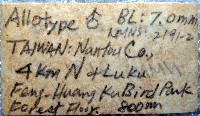 Allotype ♂ BL: 7.0mm
NMNS: 2191-2
TAIWAN: Nantou Co.,
4 Km N of Luku
Feng-Huang Ku Bird Park
Forest Floor 800mm